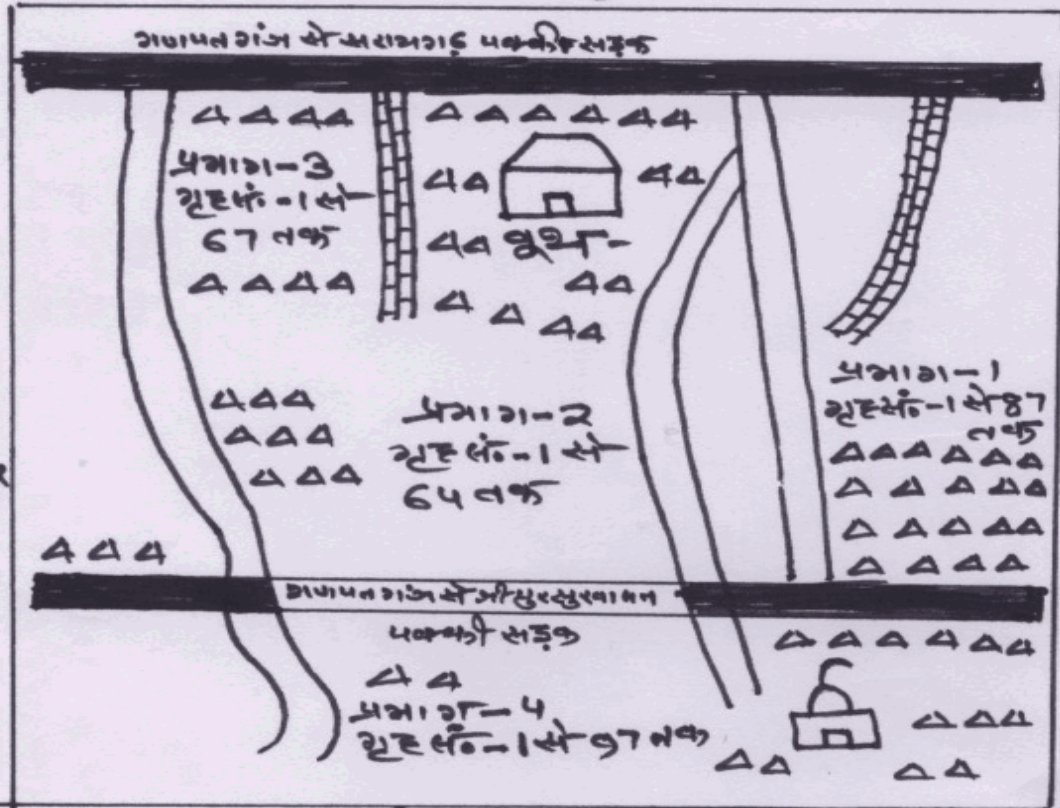 गणपत गंज से सरायगढ़ पक्की सड़क
प्रभाग-3
गृह सं.-1 से
67 तक
बूथ-
प्रभाग-1
गृह सं.-1 से 87
तक
प्रभाग-2
गृह सं.-1 से
64 तक
गणपत गंज से
पक्की सड़क
प्रभाग-4
गृह सं.-1 से 97 तक